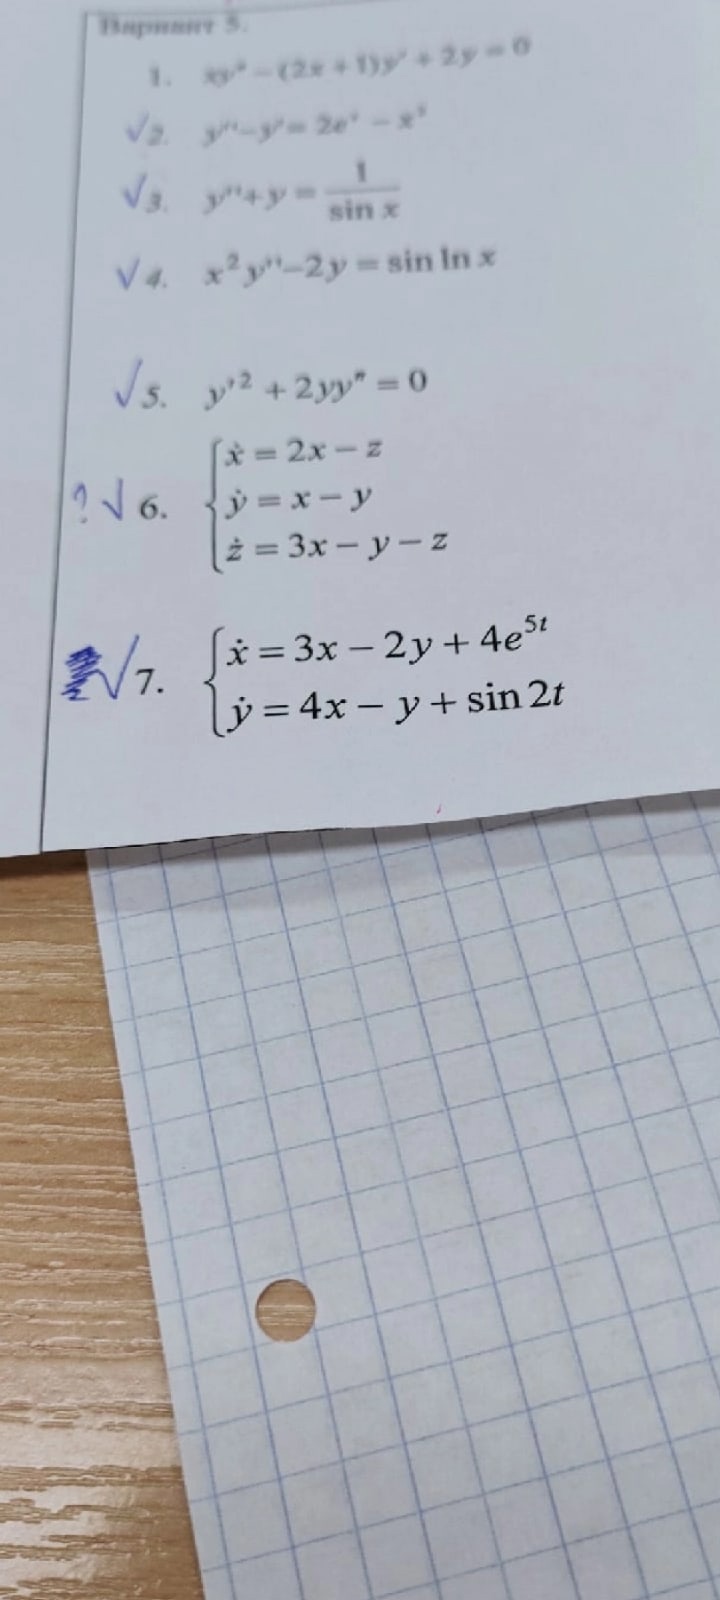 Вариант 5.
1. xy" – (2x + 1)y' + 2y = 0
√2. y''–y'= 2eˣ – x²
√3. y''+y = 1/sin x
√4. x²y''–2y = sin ln x
√5. y'² + 2yy" = 0
?√ 6. { ẋ = 2x – z
ẏ = x – y
ż = 3x – y – z
√7. { ẋ = 3x – 2y + 4e⁵ᵗ
ẏ = 4x – y + sin 2t